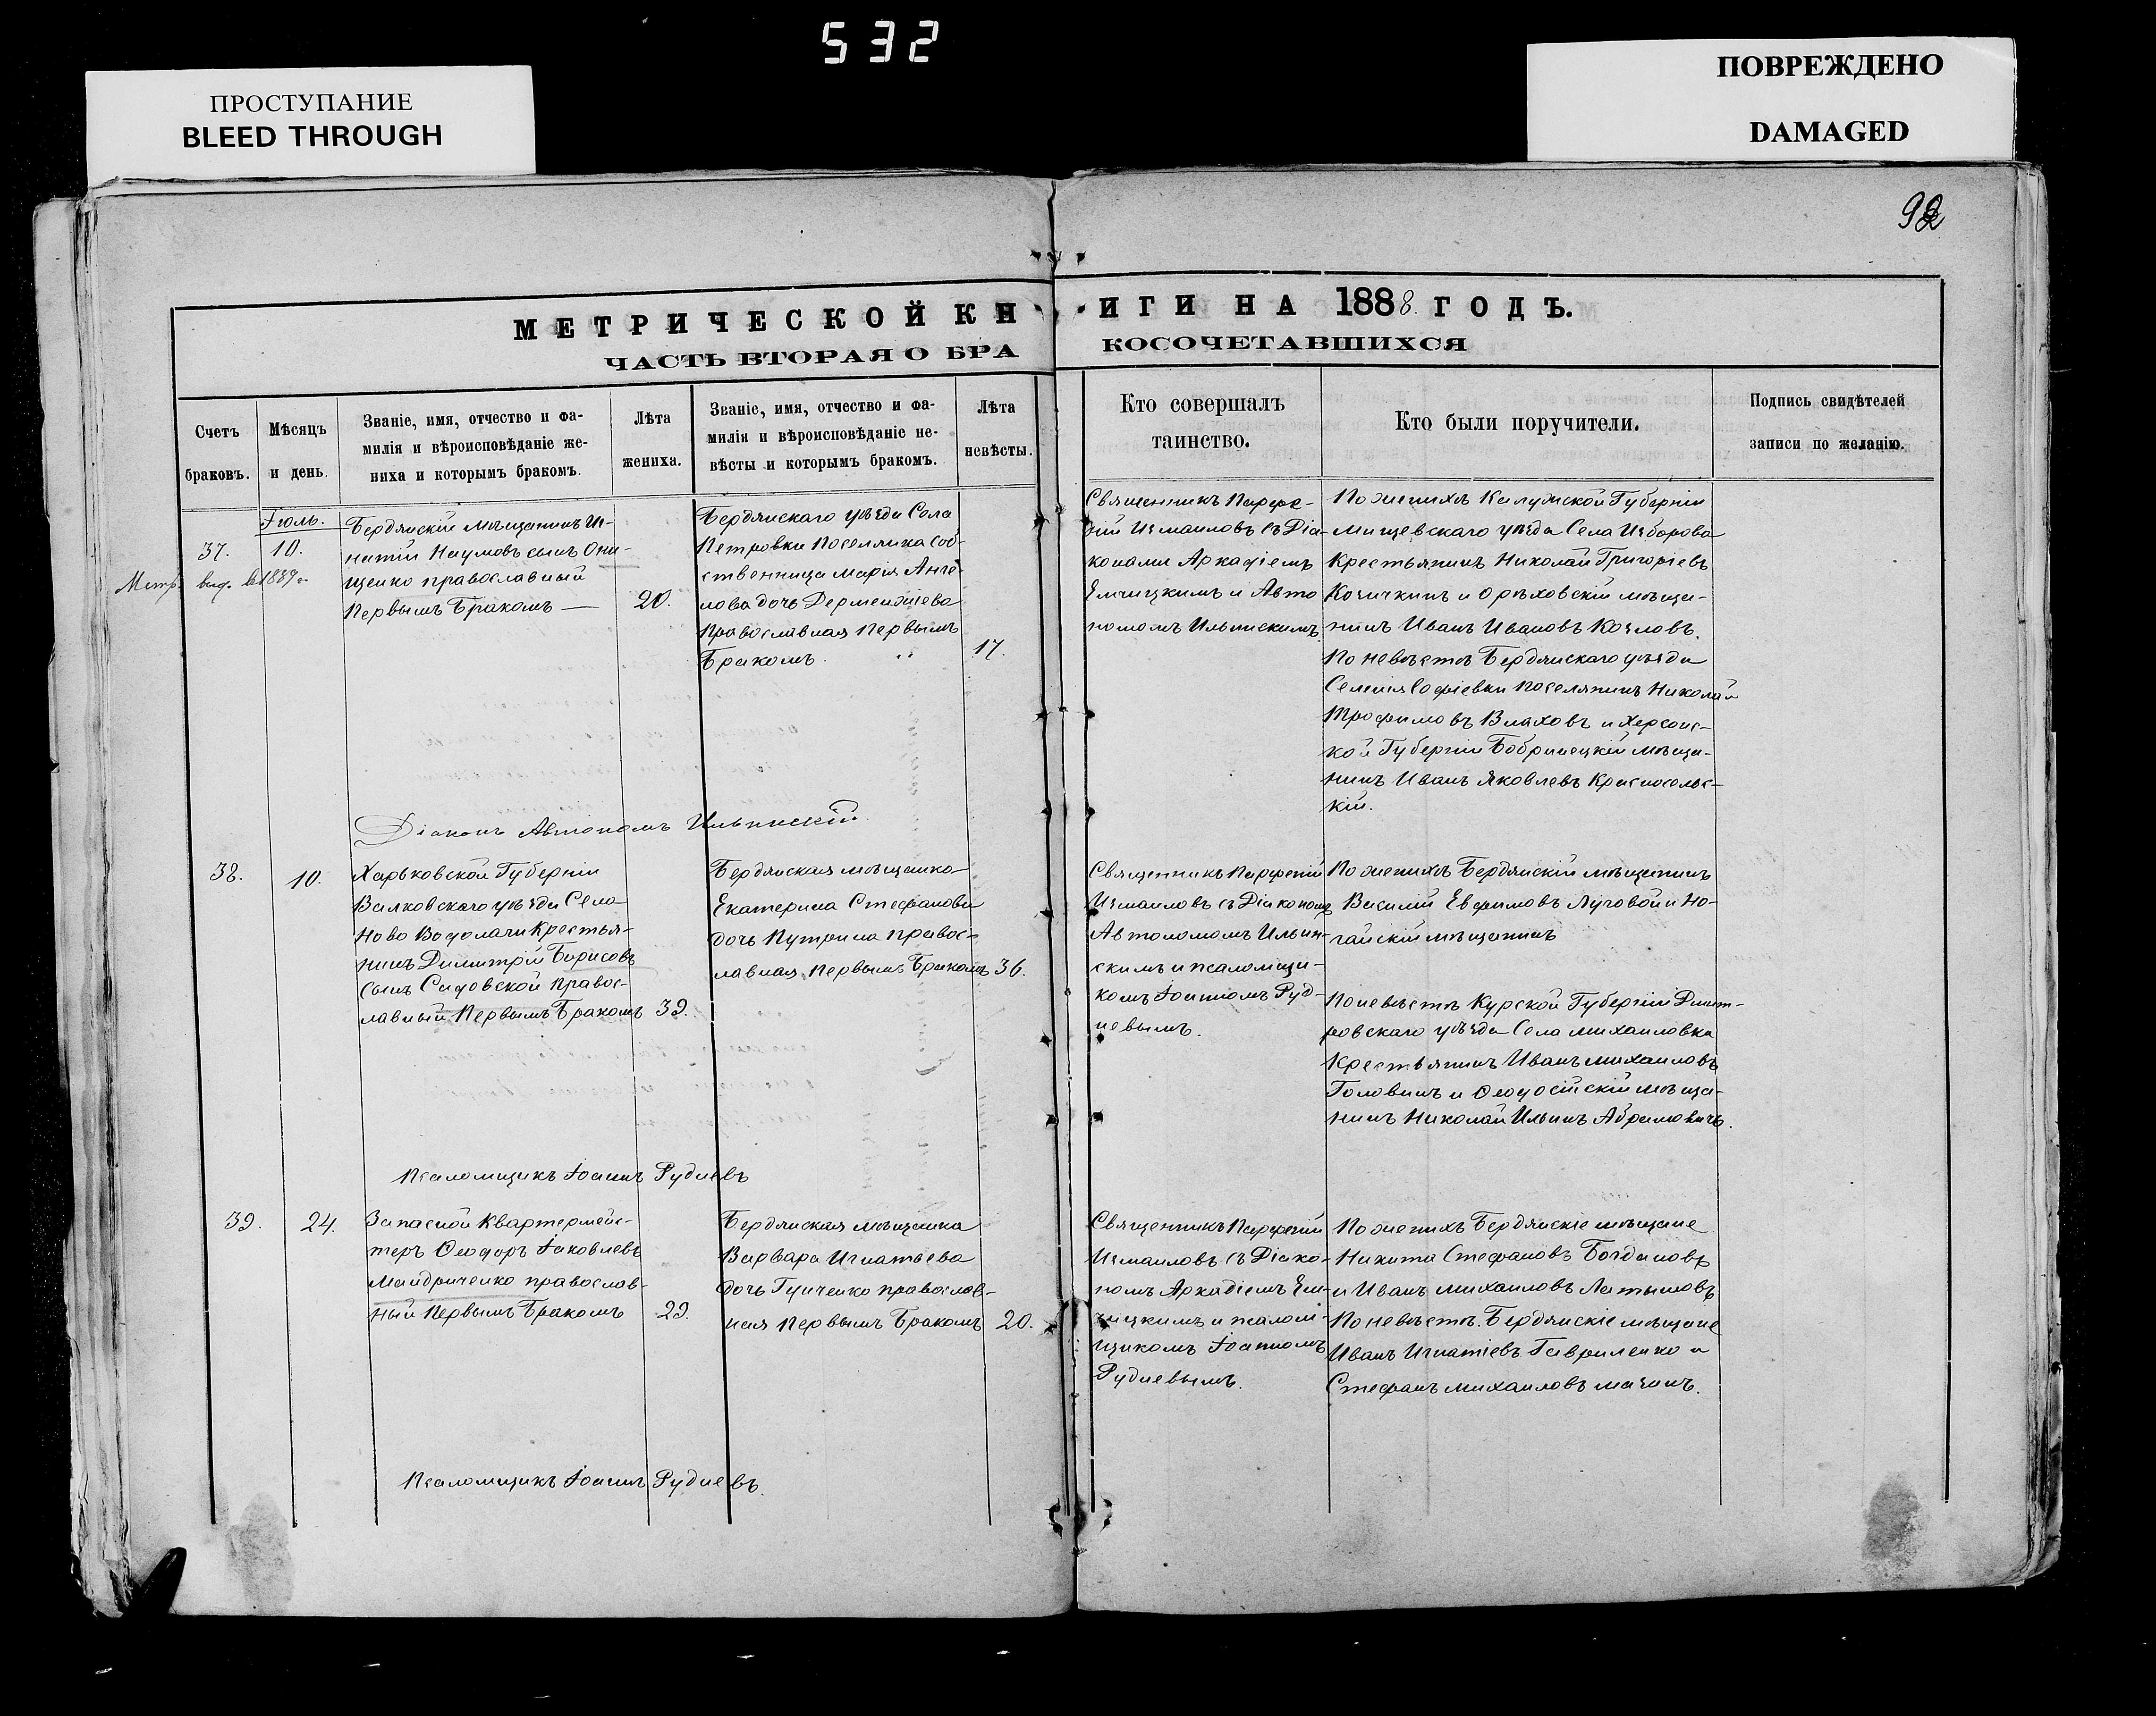 532
ПРОСТУПАНИЕ
BLEED THROUGH
ПОВРЕЖДЕНО
DAMAGED
92
МЕТРИЧЕСКОЙ КН
ИГИ НА 1888 ГОДЪ.
ЧАСТЬ ВТОРАЯ О БРА
КОСОЧЕТАВШИХСЯ
Счетъ
браковъ.
Мѣсяцъ
и день.
Званіе, имя, отчество и фа-
милія и вѣроисповѣданіе же-
ниха и которымъ бракомъ.
Лѣта
жениха.
Званіе, имя, отчество и фа-
милія и вѣроисповѣданіе не-
вѣсты и которымъ бракомъ.
Лѣта
невѣсты.
Кто совершалъ
таинство.
Кто были поручители.
Подпись свидѣтелей
записи по желанію.
37.
Метр. выд. 1889 г.
Іюль.
10.
Бердянскій мѣщанинъ Иг-
натій Наумовъ сынъ Они-
щенко православный
Первымъ Бракомъ —
20.
Бердянскаго уѣзда Села
Петровки Поселянка соб-
ственница Марія Анге-
лова дочь Дерменжіева
Православная Первымъ
Бракомъ.
17.
Священникъ Парфе-
ній Измаиловъ съ Діа-
конами Аркадіемъ
Емчицкимъ и Авто
номомъ Ильинскимъ
По женихѣ Калужской Губерніи
Мищевскаго уѣзда Села Изборова
Крестьянинъ Николай Григоріевъ
Козичкинъ и Орѣховскій мѣща-
нинъ Иванъ Ивановъ Козловъ.
По невѣстѣ Бердянскаго уѣзда
Селенія Софіевки поселянинъ Николай
Трофимовъ Влаховъ и Херсонс-
кой Губерніи Бобринецкій мѣща-
нинъ Иванъ Яковлевъ Красносельс-
кій.
Діаконъ Автономъ Ильинскій
38.
10.
Харьковской Губерніи
Валковскаго уѣзда Села
Ново Водолаги Крестья-
нинъ Димитрій Борисовъ
сынъ Садовской Правос-
лавный Первымъ Бракомъ
39.
Бердянская мѣщанка
Екатерина Стефанова
дочь Путрина правос-
лавная, Первымъ Бракомъ
36.
Священникъ Парфеній
Измаиловъ съ Діакономъ
Автономомъ Ильин-
скимъ и псаломщи-
комъ Іоанномъ Руд-
невымъ.
По женихѣ Бердянскій мѣщанинъ
Василій Евфимовъ Луговой и Но-
гайскій мѣщанинъ
По невѣстѣ Курской Губерніи Дмит-
ровскаго уѣзда Села Михаиловка
Крестьянинъ Иванъ Михаиловъ
Головинъ и Ѳеодосійскій мѣща-
нинъ Николай Ильинъ Абрамовичъ.
Псаломщикъ Іоаннъ Рудневъ
39.
24.
Запасной Квартермейс-
теръ Ѳеодоръ Іаковлевъ
Мандриченко православ-
ный Первымъ Бракомъ
29.
Бердянская мѣщанка
Варвара Игнатьева
дочь Гунченко православ-
ная Первымъ Бракомъ
20.
Священникъ Парфеній
Измаиловъ съ Діако-
номъ Аркадіемъ Ем-
чицкимъ и псалом-
щикомъ Іоанномъ
Рудневымъ.
По женихѣ Бердянскіе мѣщане
Никита Стефановъ Богдановъ
и Иванъ Михаиловъ Латышовъ
По невѣстѣ. Бердянскіе мѣщане
Иванъ Игнатіевъ Гавриленко и
Стефанъ Михаиловъ Мазинъ.
Псаломщикъ Іоаннъ Рудневъ.